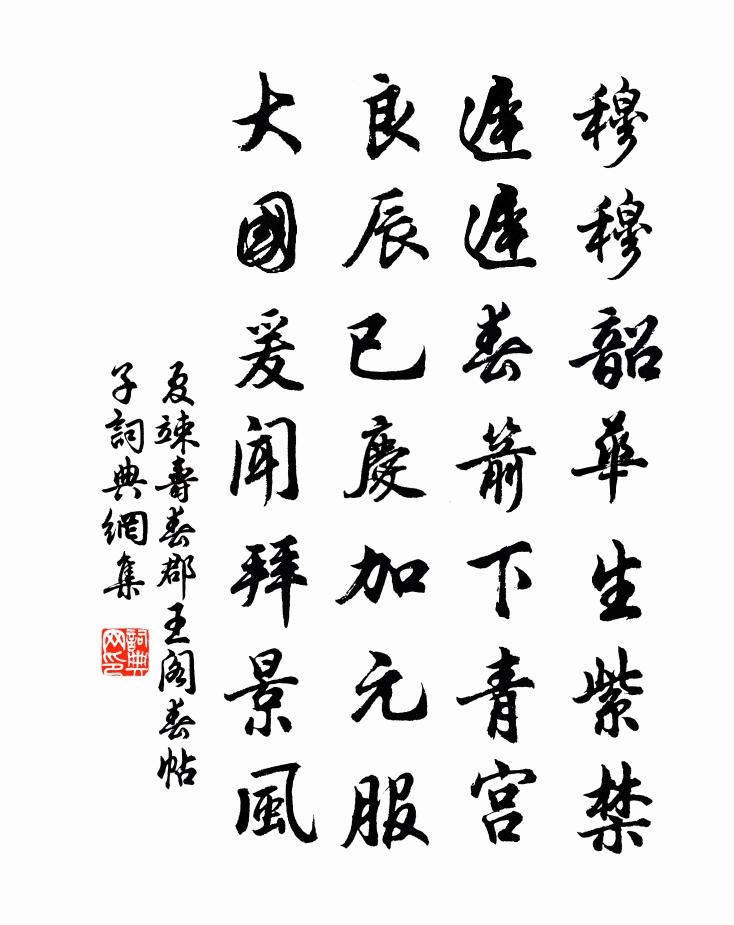 穆穆韶華生紫禁
遲遲春箭下青宮
良辰已慶加元服
大國爰聞拜景風
夏竦壽春郡王閣春帖
子詞典網集
詞典网印